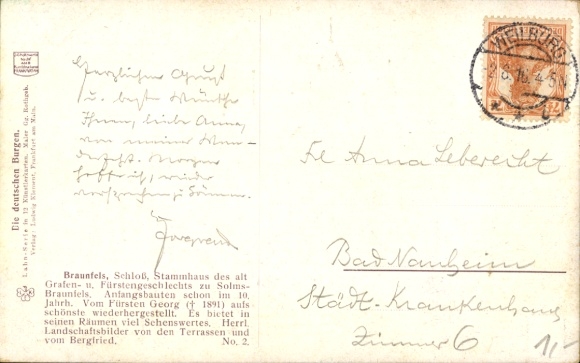 Herzlichen Gruß
u. beste Wünsche
Ihnen, liebe Anna,
von meiner Wan-
derfahrt. Morgen
hoffe ich, wieder
vorsprechen zu können.
WEILBURG
Frl Anna Leberecht
Bad Nauheim
Städt-Krankenhaus
Zimmer 6
1/-
Die deutschen Burgen.
Lahn-Serie in 12 Künstlerkarten. Maler Gg. Burlbank.
Verlag: Ludwig Klement, Frankfurt am Main.
Braunfels, Schloß, Stammhaus des alt
Grafen- u. Fürstengeschlechts zu Solms-
Braunfels. Anfangsbauten schon im 10.
Jahrh. Vom Fürsten Georg († 1891) aufs
schönste wiederhergestellt. Es bietet in
seinen Räumen viel Sehenswertes. Herrl.
Landschaftsbilder von den Terrassen und
vom Bergfried. No. 2.